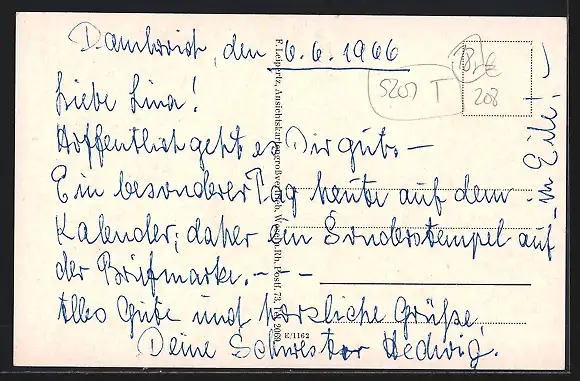 Dambroich, den 6.6.1966
Liebe Lina!
Hoffentlich geht es Dir gut. —
Ein besonderer Tag heute auf dem
Kalender; daher ein Sonderstempel auf
der Briefmarke. - - -
Alles Gute und herzliche Grüße,
Deine Schwester Hedwig.
in Eile! -
F. Leipertz, Ansichtskartengroßvertrieb, Wesel/Rh. Postf. 73, Tel. 2069
E/1162
5207 T
208